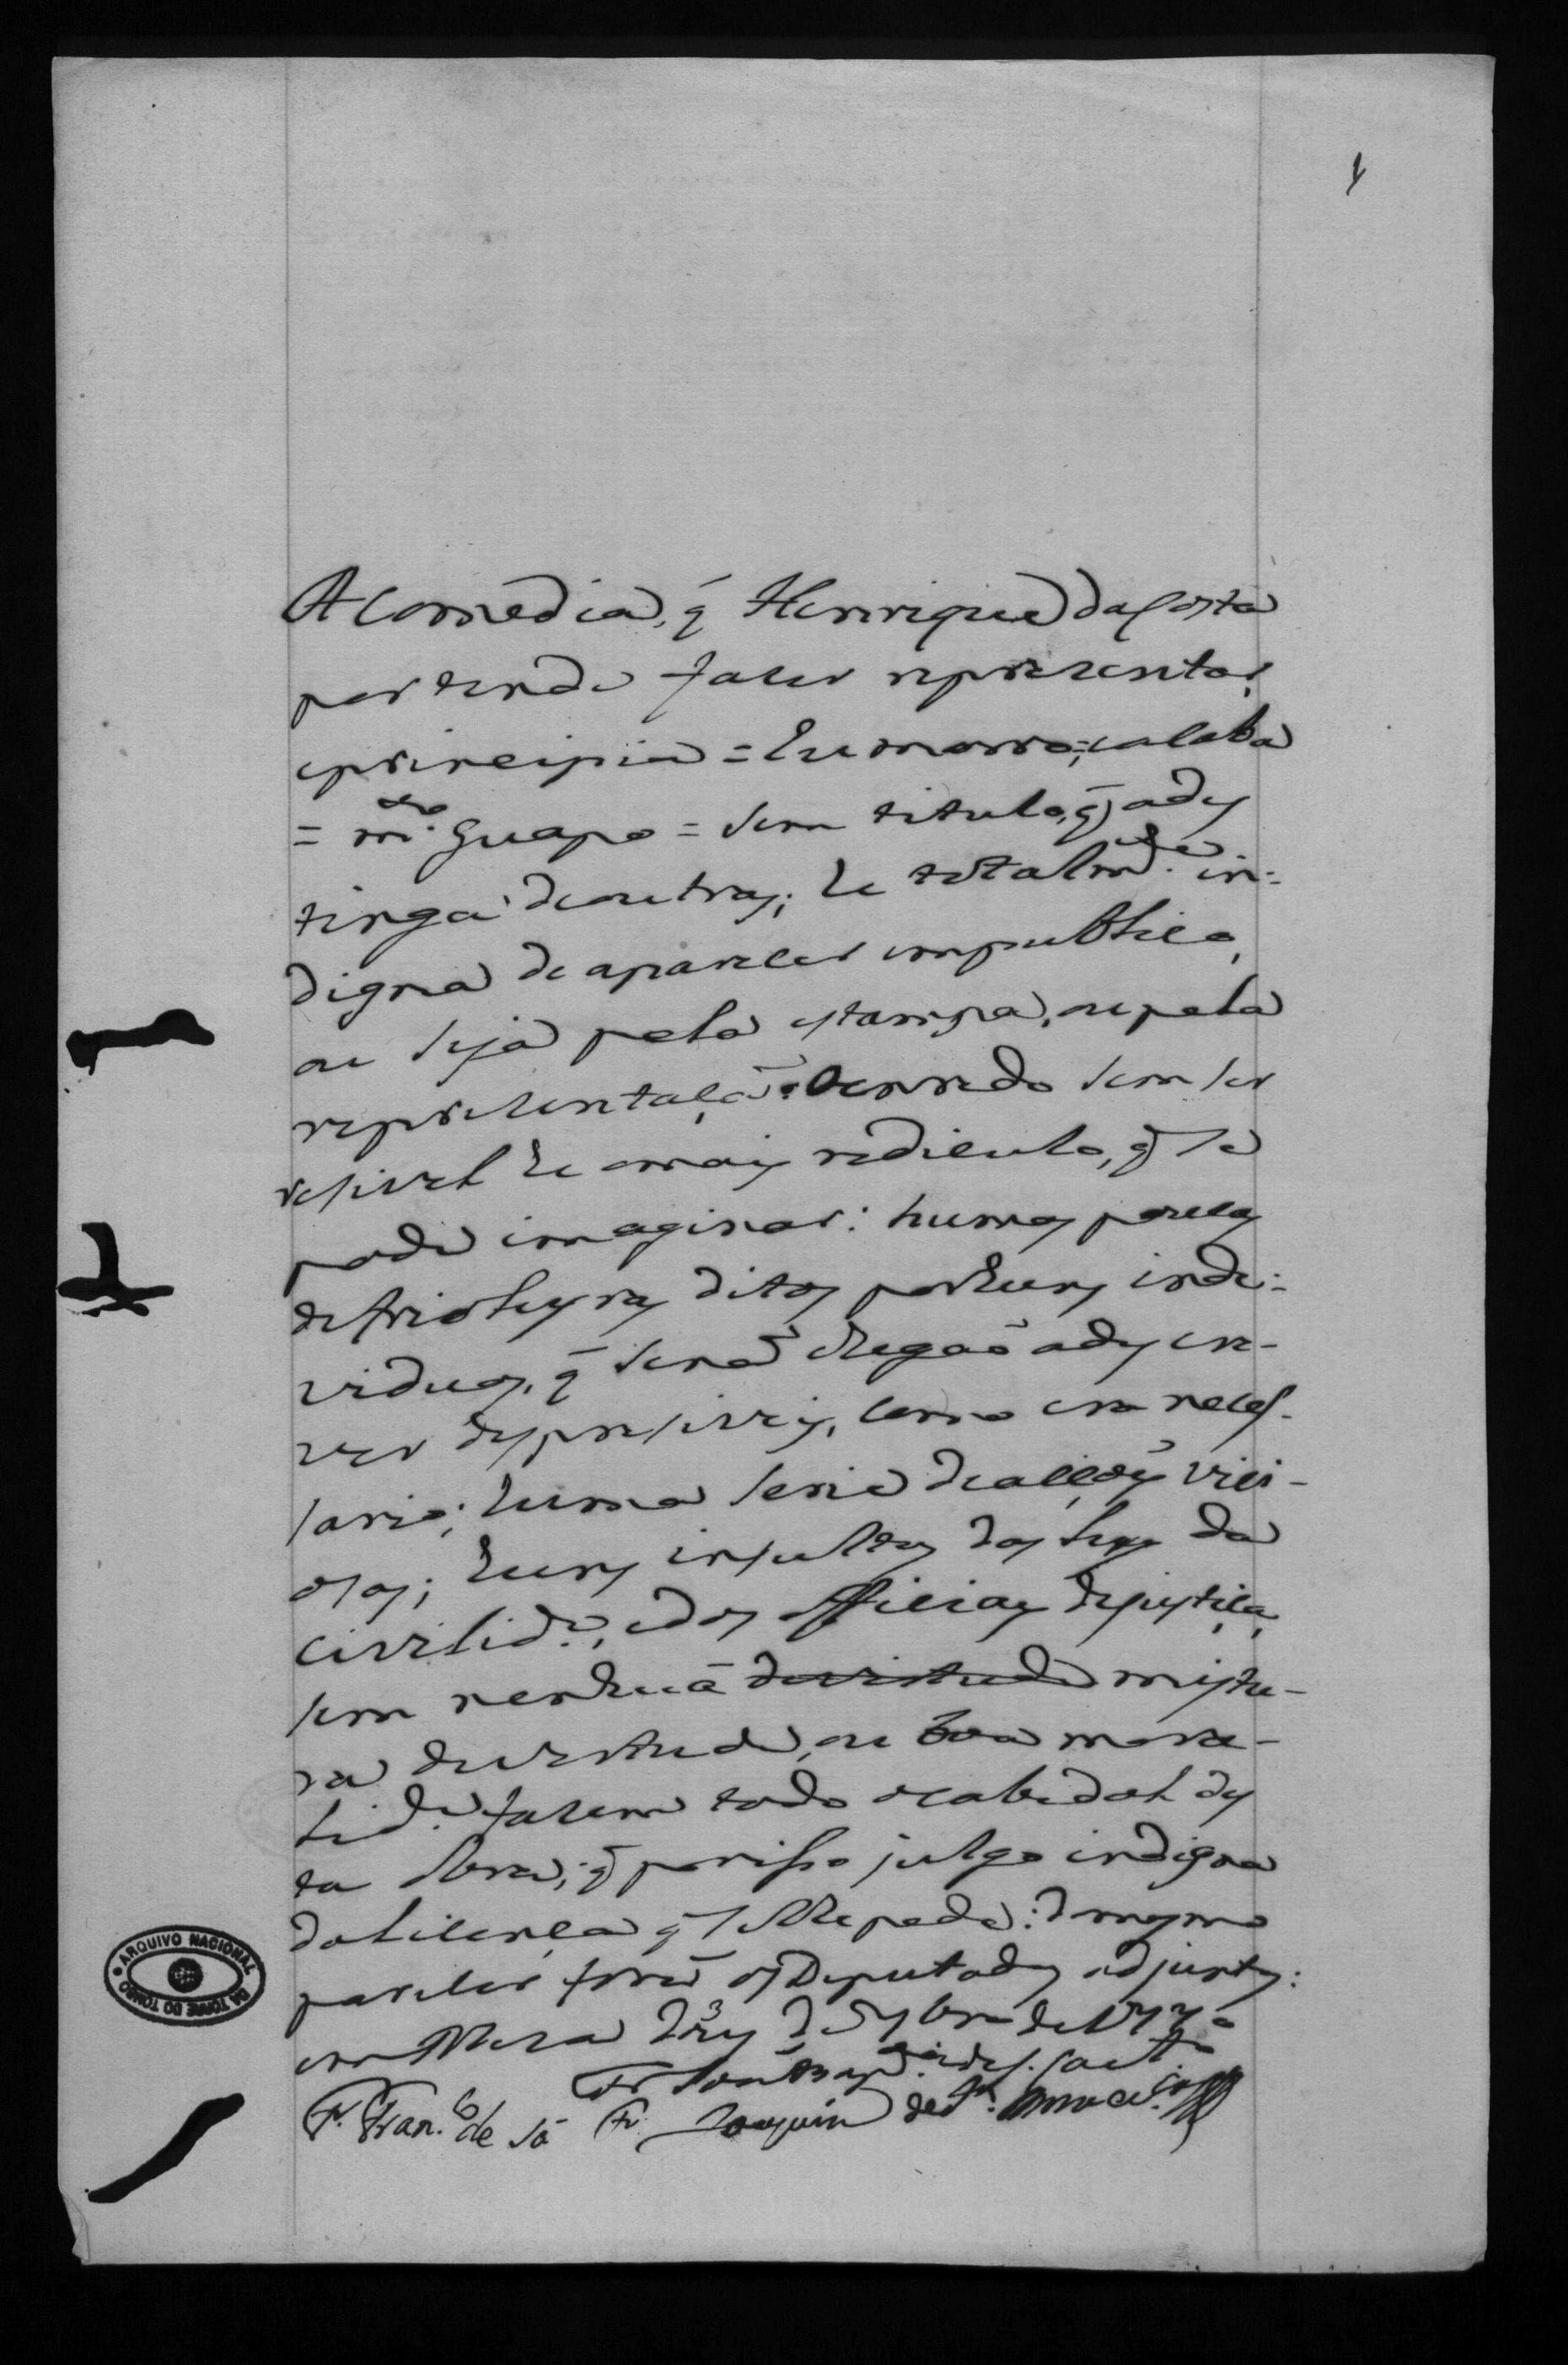 1
A Comedia, q̃ Henrique da Costa
pertende fazer reprezentar,
e principia = he morro; e acaba
= m.to Guapo = sem titulo, q̃ a des
tinga de outras; he totalm.te in-
digna de aparecer em publico,
ou seja pela estampa, ou pela
reprezentaçã: O enredo sem ser
rizivel he o mais rediculo, q̃ se
pode imaginar: humas poucas
de frioleyras ditas por huns inde-
viduos, q̃ se nã chegaõ a descre-
ver desprezives, como era neces-
sario; huma serie de acçoẽs vici-
ozas; huns insultos das leys da
civilid.e, e dos officiaes de justiça,
sem nenhuã de virtude mistu-
ra de virtude, ou boa mora-
lid.e fazem todo o cabedal des
ta obra; q̃ por isso julgo indigna
da licença q̃ se lhe pede: do mesmo
parecer forã os Deputados adjuntos:
em Meza
Fr.
F. Fran.co de Sá Fr. Joaquim de S.ta Anna e S.a
ARQUIVO NACIONAL
DA TORRE DO TOMBO